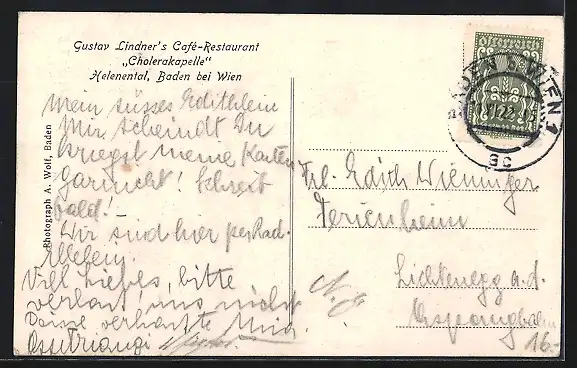 Gustav Lindner's Café-Restaurant
„Cholerakapelle"
Helenental, Baden bei Wien
Photograph A. Wolf, Baden
Mein süsses Edithlein
Mir scheindt Du
kriegst meine Karten
garnicht! Schreib
bald!
Wir sind hier per Rad.
Viel Liebes, bitte
uns nicht
Deine Mia.
Frl. Edith Wieninger
Ferienheim
Lichtenegg a.d.
Aspangbahn
N.Ö.
16.-
BADEN b. WIEN 1
3c